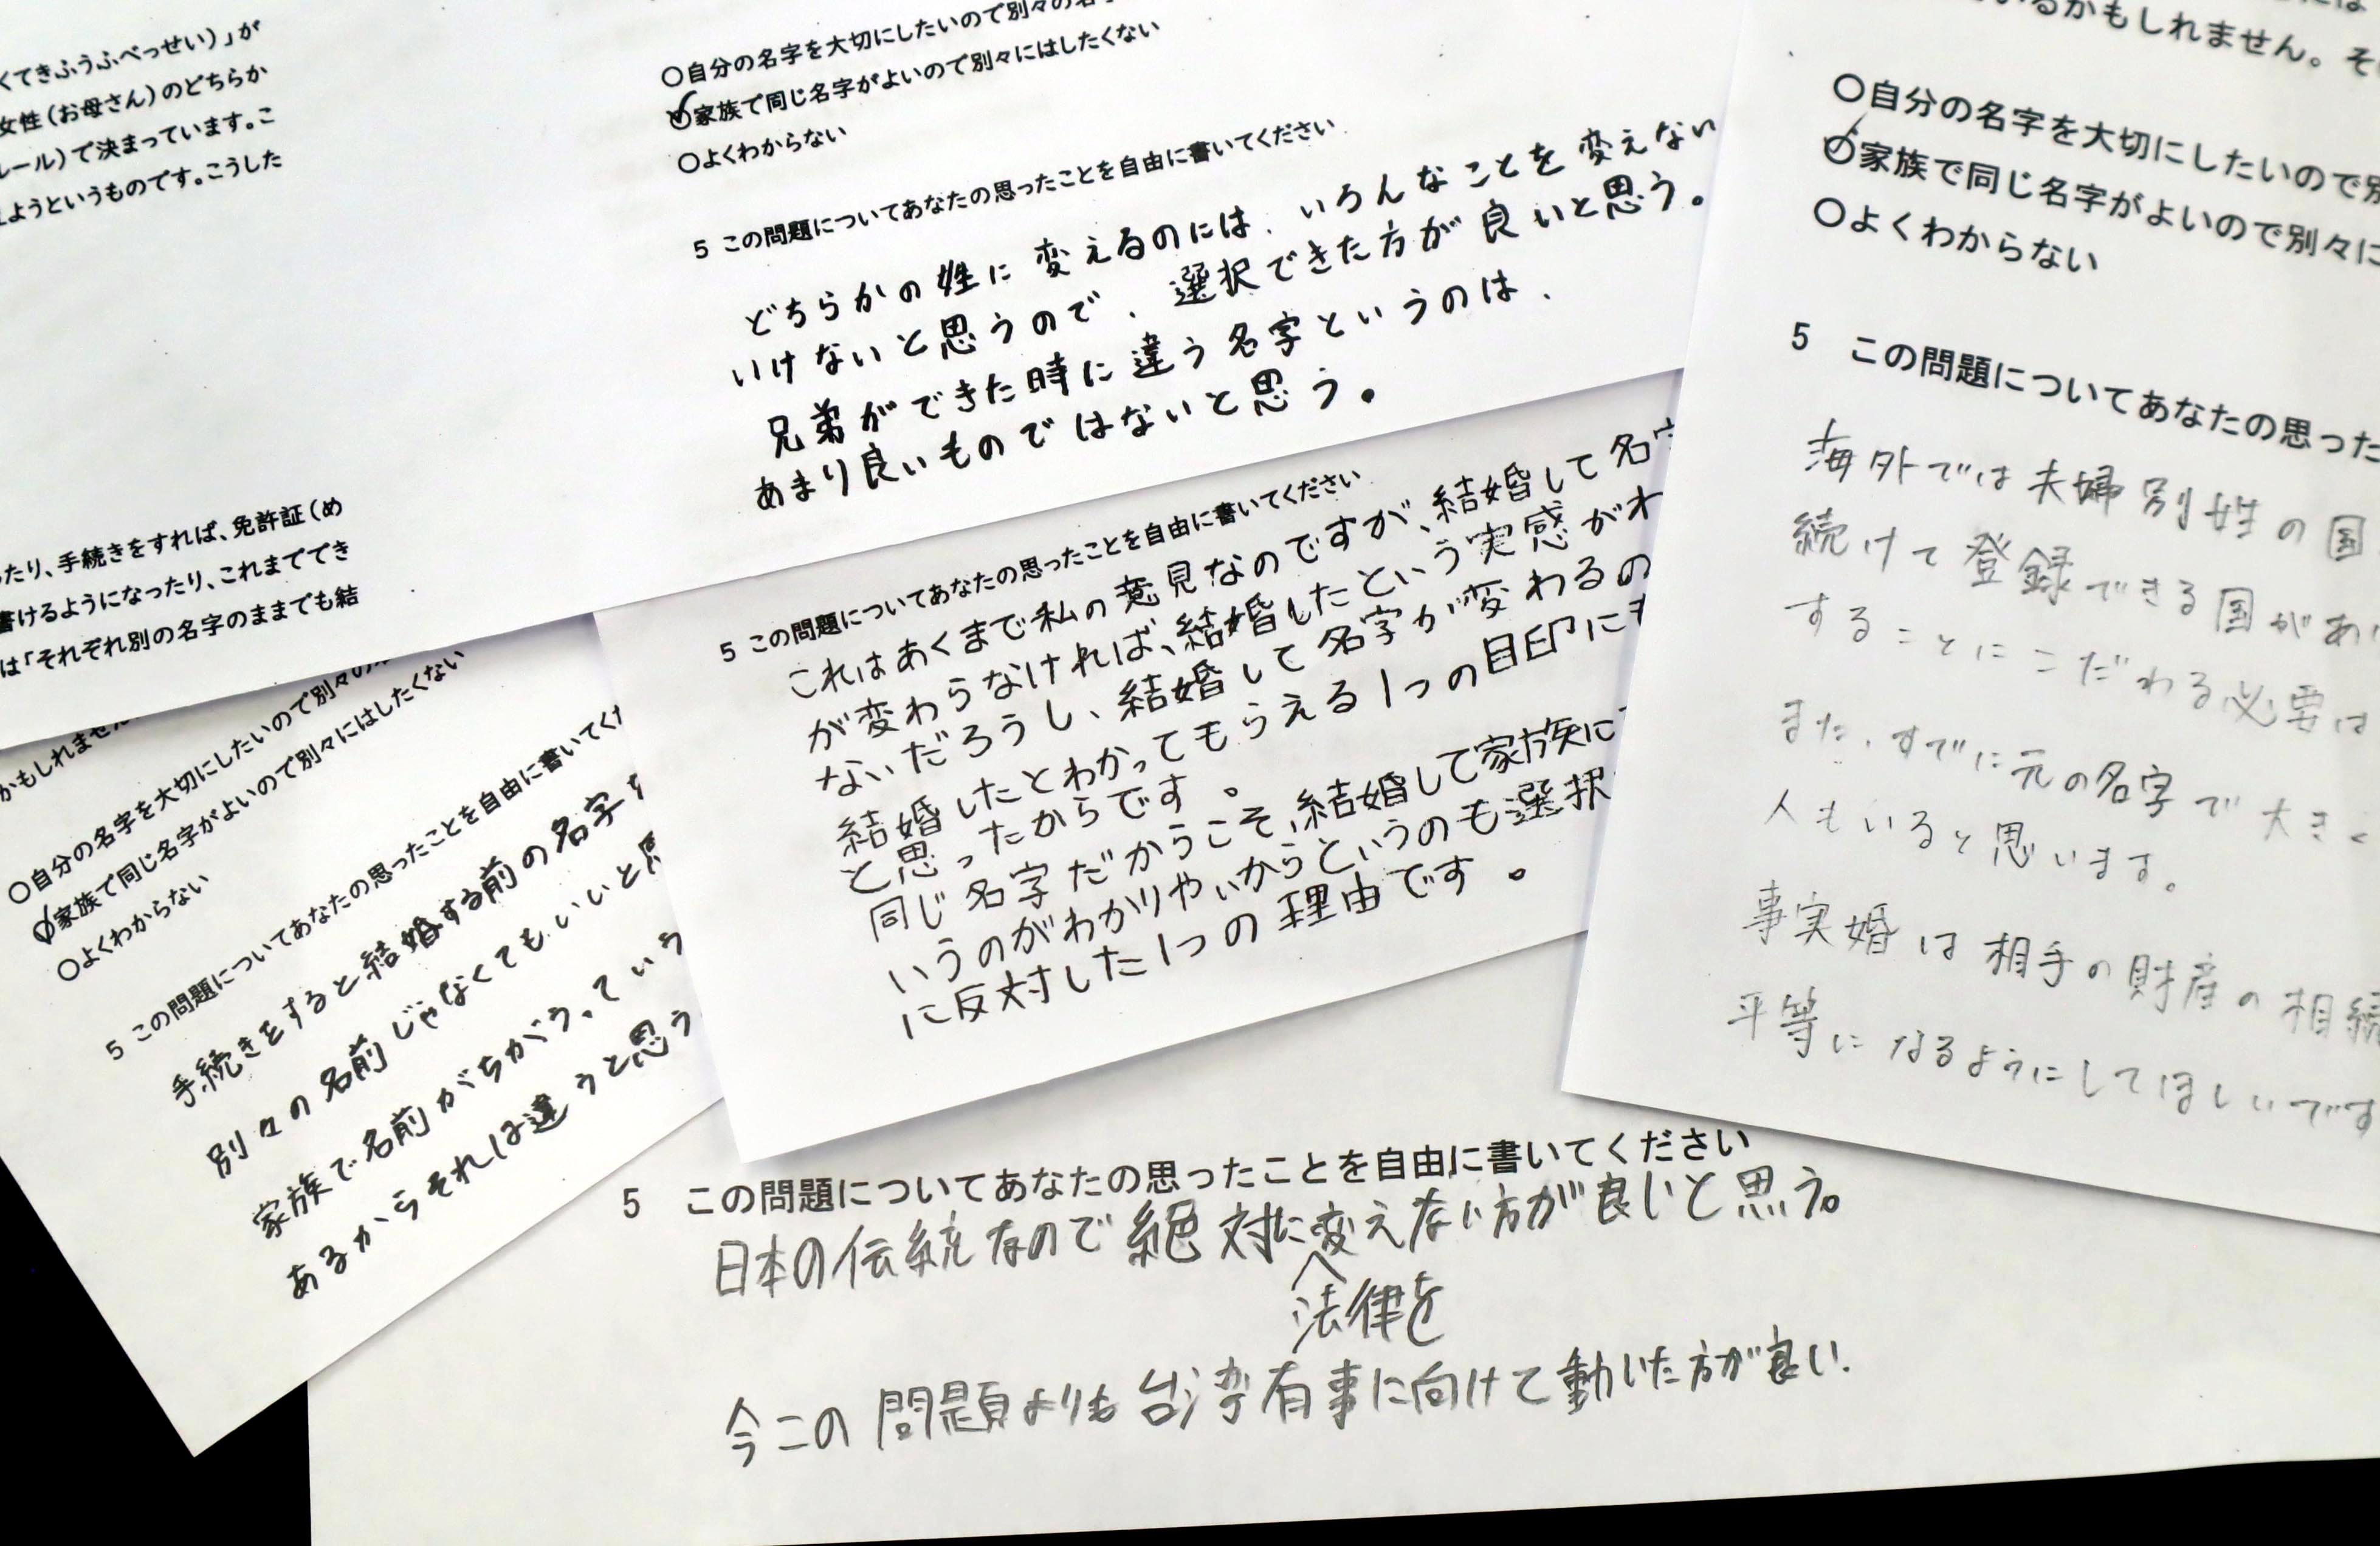 くてきふうふべっせい）」が
女性（お母さん）のどちらか
ルール）で決まっています。こ
ようというものです。こうした
たり、手続きをすれば、免許証（め
書けるようになったり、これまででき
は「それぞれ別の名字のままでも結
〇自分の名字を大切にしたいので別々の名字
〇家族で同じ名字がよいので別々にはしたくない
〇よくわからない
5 この問題についてあなたの思ったことを自由に書いてください
どちらかの姓に変えるのには、いろんなことを変えない
いけないと思うので、選択できた方が良いと思う。
兄弟ができた時に違う名字というのは、
あまり良いものではないと思う。
5 この問題についてあなたの思ったことを自由に書いてください
これはあくまで私の意見なのですが、結婚して名字
が変わらなければ、結婚したという実感がわ
ないだろうし、結婚して名字が変わるの
結婚したとわかってもらえる1つの目印に
と思ったからです。
同じ名字だからこそ、結婚して家族に
いうのがわかりやいからというのも選択
に反対した1つの理由です。
かもしれません
〇自分の名字を大切にしたいので別々の
〇家族で同じ名字がよいので別々にはしたくない
〇よくわからない
5 この問題についてあなたの思ったことを自由に書いてくだ
手続きをすると結婚する前の名字を
別々の名前じゃなくてもいいと思
家族で名前がちがう、ていう
あるからそれは違うと思う
いるかもしれません。そ
〇自分の名字を大切にしたいので別
〇家族で同じ名字がよいので別々に
〇よくわからない
5 この問題についてあなたの思った
海外では夫婦別姓の国
続けて登録できる国があ
することにこだわる必要は
また、すでに元の名字で大きく
人もいると思います。
事実婚は相手の財産の相続
平等になるようにしてほしいです
5 この問題についてあなたの思ったことを自由に書いてください
日本の伝統なので絶対に変えない方が良いと思う。
法律を
今この問題よりも台湾有事に向けて動いた方が良い.